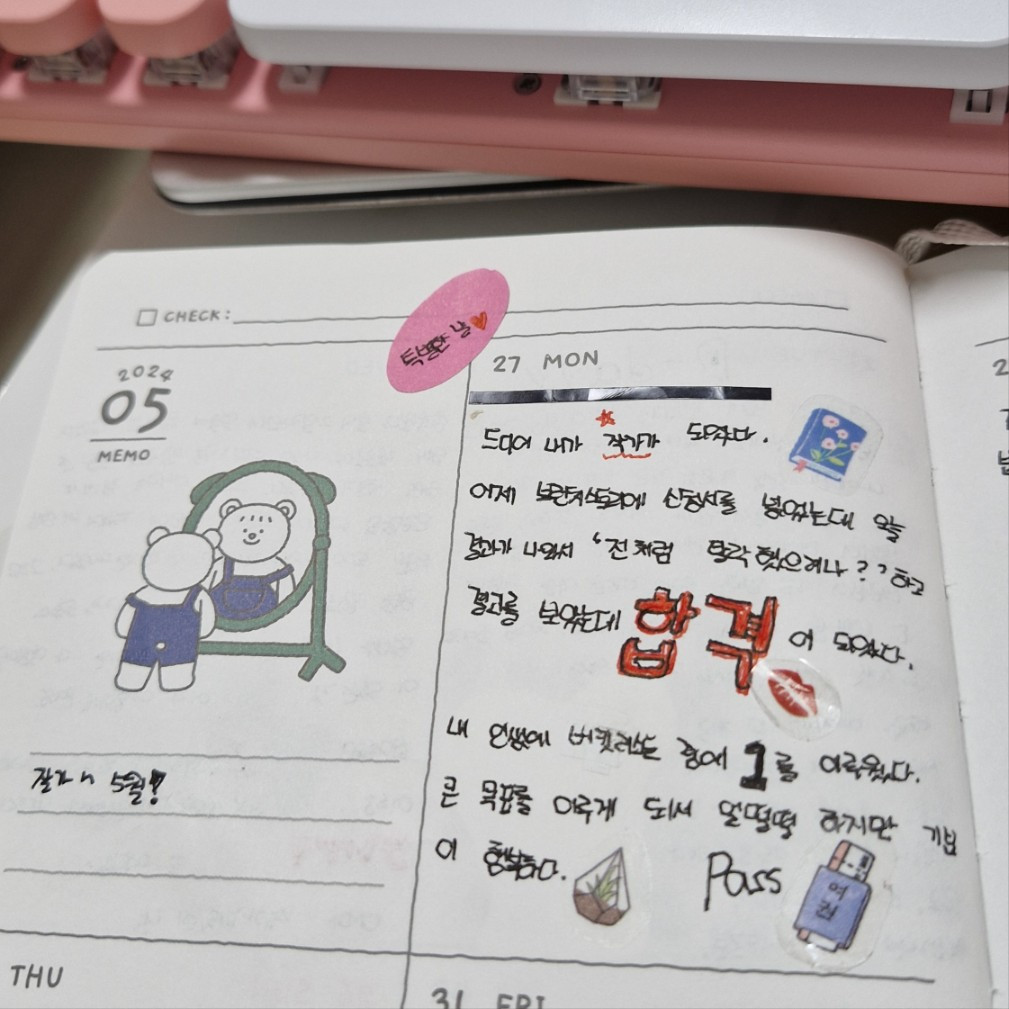 CHECK:
특별한 날
2024
05
MEMO
27 MON
드디어 내가 작가가 되었다.
어제 브런치스토리에 신청서를 넣었는데 오늘
결과가 나와서 '전처럼 탈락했으려나?' 하고
결과를 보았는데 합격이 되었다.
내 인생에 버킷리스트 중에 1를 이루웠다.
큰 목표를 이루게 되서 얼떨떨 하지만 기쁨
이 행복하다.
Pass
여권
잘가~ 5월!
THU
31 FRI